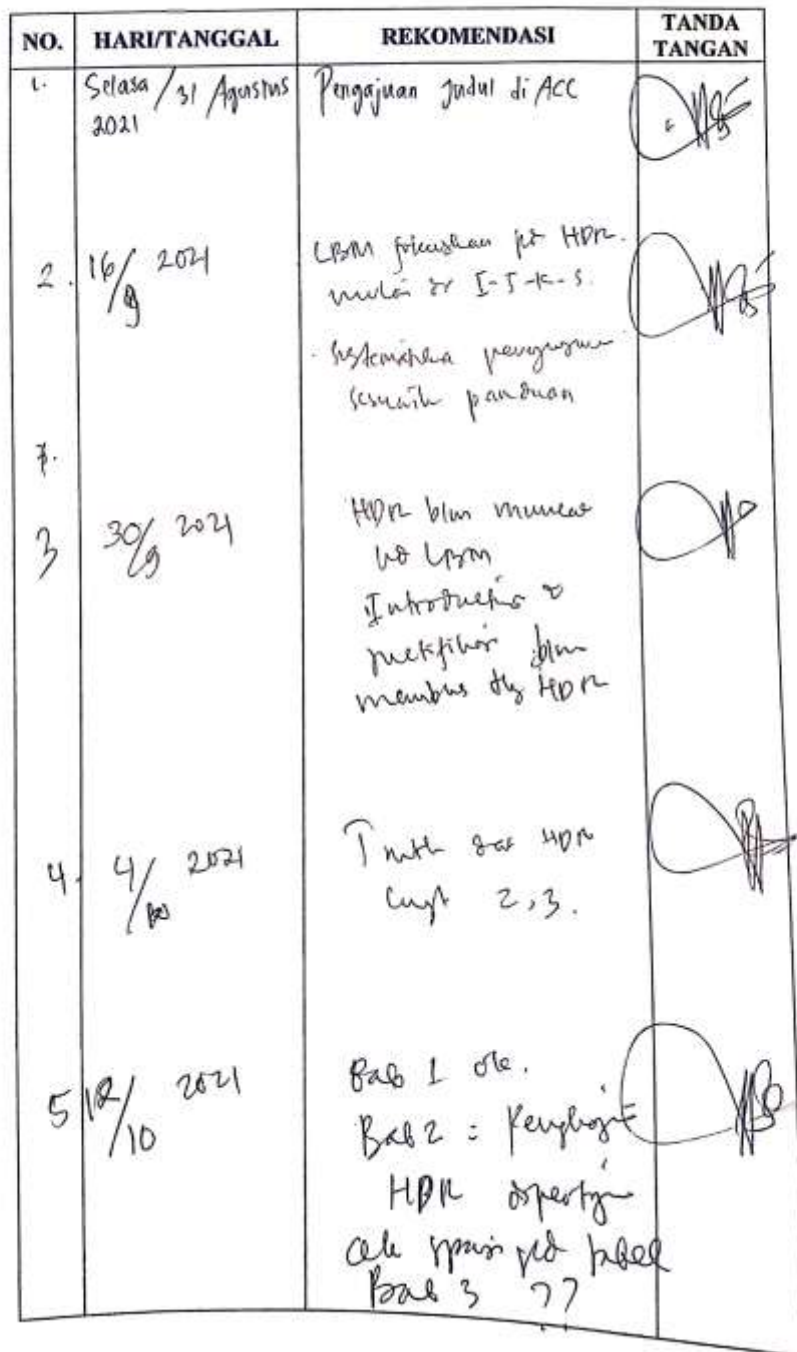 NO. HARI/TANGGAL REKOMENDASI TANDA TANGAN
1. Selasa / 31 Agustus 2021 Pengajuan Judul di ACC
2. 16/9 2021 LBM fokuskan pd HDR.
mulai dr I-J-K-S.
Sistematika
sesuaik panduan
3 30/9 2021 HDR blm muncul
pd LBM
Introduction
blm
HDR
4. 4/10 2021 HDR
2,3.
5 12/10 2021 Bab 1 ok.
Bab 2 :
HDR dipertajam
cek spasi pd tabel
Bab 3 ??